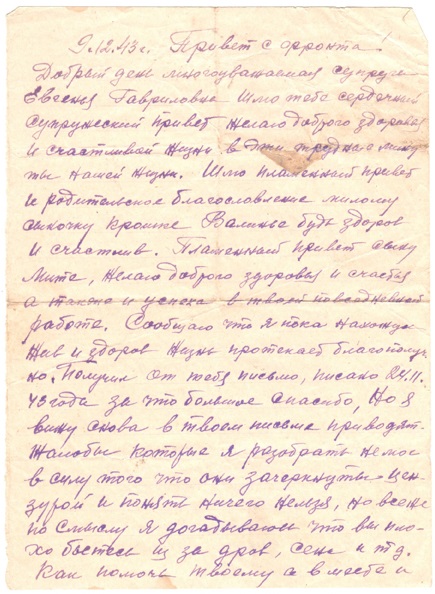 9.12.43 г. Привет с фронта!
Добрый день многоуважаемая супруга
Евгенья Гавриловна Шлю тебе сердечный
супружеский привет желаю доброго здоровья
и счастливой жизни в дни трудные мину
ты нашей жизни. Шлю пламенный привет
и родительское благословление милому
сыночку крошке Валинье будь здоров
и счастлив. Пламенный привет сыну
Мите, желаю доброго здоровья и счастья
а также и успеха в твоей повседневной
работе. Сообщаю что я пока нахожусь
жив и здоров жизнь протекает благополуч
но. Получил от тебя письмо, писано 24.11.
43 года за что большое спасибо, Но я
вижу снова в твоем письме приводят.
жалобы которые я разобрать не мог
в силу того что они зачеркнуты цен-
зурой и понять ничего нельзя, но все же
по смыслу я догадываюсь что вы пло-
хо бьетесь из за дров, сена и тд.
Как помочь твоему а вместе и